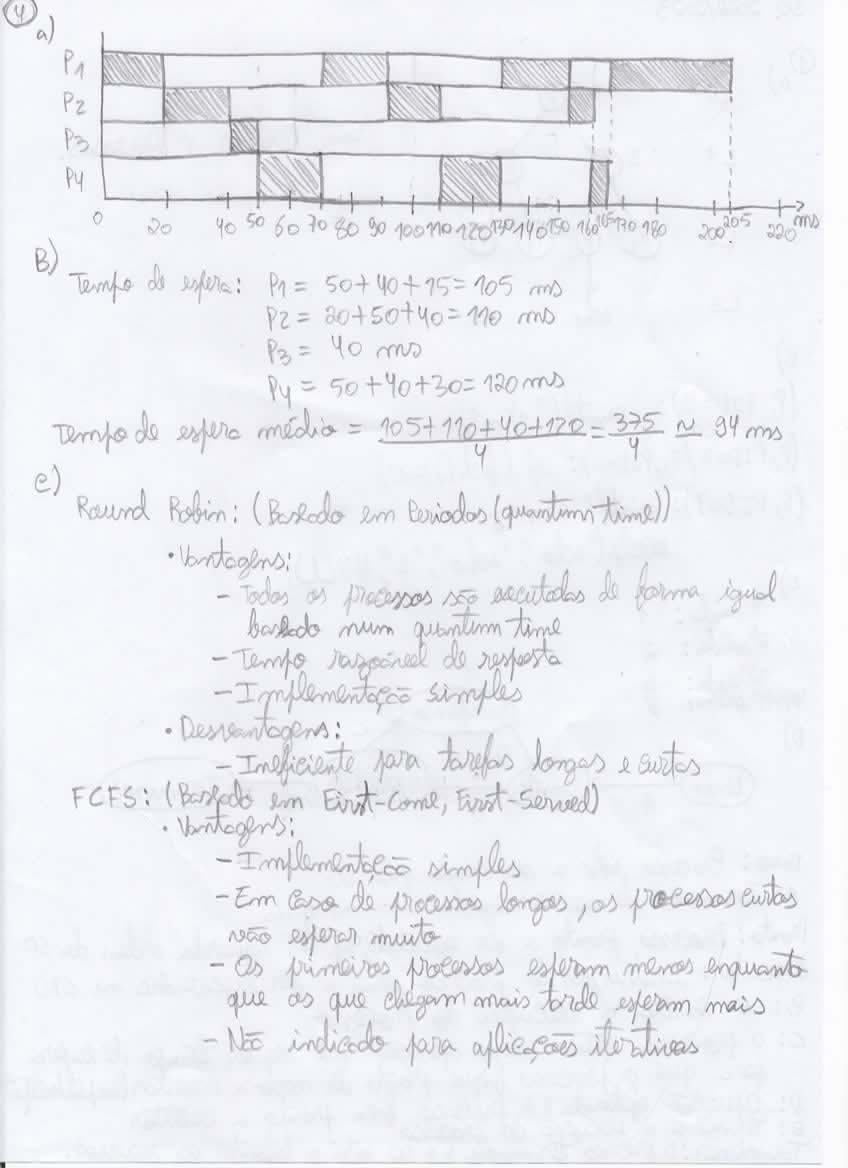 4
a)
P1
P2
P3
P4
0 20 40 50 60 70 80 90 100 110 120 130 140 150 160 165 170 180 200 205 220 ms
B)
Tempo de espera: P1 = 50+40+15=105 ms
P2 = 20+50+40=110 ms
P3 = 40 ms
P4 = 50+40+30=120 ms
Tempo de espera médio = 105+110+40+120/4 = 375/4 ≈ 94 ms
C)
Round Robin: (Baseado em Periodos (quantum time))
• Vantagens:
- Todos os processos são executados de forma igual
baseado num quantum time
- Tempo razoável de resposta
- Implementação simples
• Desvantagens:
- Ineficiente para tarefas longas e curtas
FCFS: (Baseado em First-Come, First-Served)
• Vantagens:
- Implementação simples
- Em caso de processos longos, os processos curtos
vão esperar muito
- Os primeiros processos esperam menos enquanto
que os que chegam mais tarde esperam mais
- Não indicado para aplicações iterativas